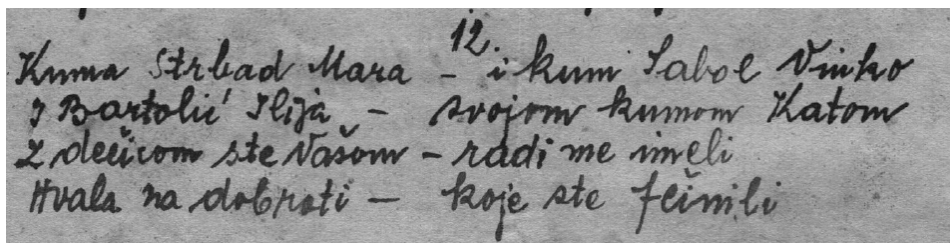 12.
Kuma Strbad Mara - i kum Sabol Vinko
I Bartolić Ilija - svojom kumom Katom
Z dečicom ste Vašom - radi me imeli
Hvala na dobroti - koje ste fčinili